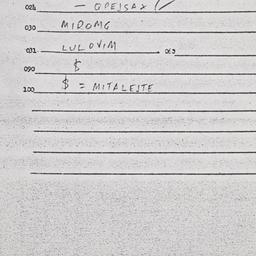 024 — OPEISAX
030 MIDOMG
031 LULOVIM
090 $
100 $ = MITALEITE